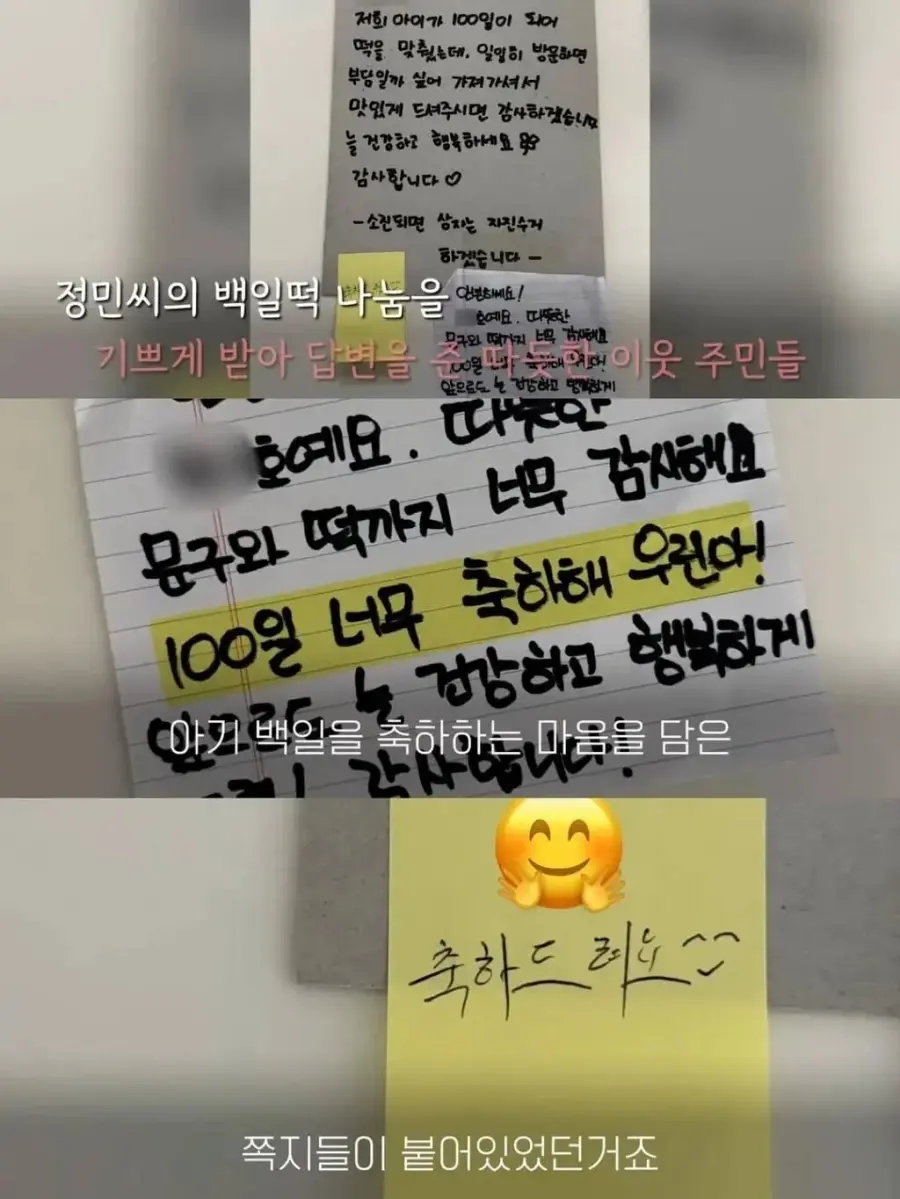 저희 아이가 100일이 되어
떡을 맞췄는데, 일일히 방문하면
부담일까 싶어 가져가셔서
맛있게 드셔주시면 감사하겠습니다
늘 건강하고 행복하세요
감사합니다 ♡
-소진되면 상자는 자진수거
하겠습니다-
안녕하세요!
호예요. 따뜻한
문구와 떡까지 너무 감사해요
100일 너무 축하해 우린아!
앞으로도 늘 건강하고 행복하게
정민씨의 백일떡 나눔을
기쁘게 받아 답변을 준 따듯한 이웃 주민들
호예요. 따뜻한
문구와 떡까지 너무 감사해요
100일 너무 축하해 우린아!
앞으로도 늘 건강하고 행복하게
감사합니다!
아기 백일을 축하하는 마음을 담은
축하드려요^^
쪽지들이 붙어있었던거죠